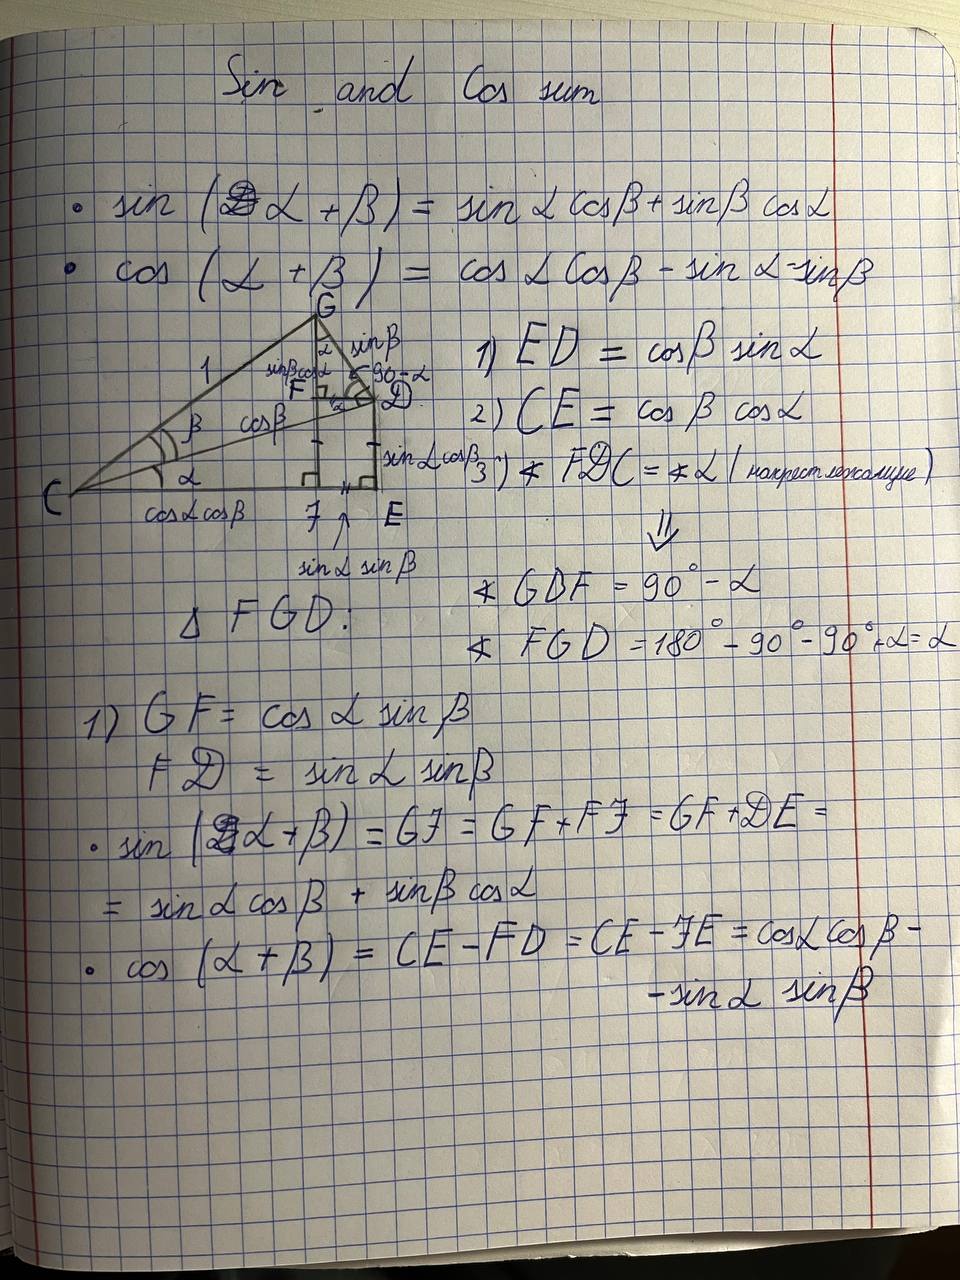 Sin and Cos sum
• sin (α + β) = sin α cos β + sin β cos α
• cos (α + β) = cos α cos β - sin α · sin β
G
α
sin β
1
sin β cos α
90-α
F
α
D
β
cos β
α
sin α cos β
C
cos α cos β
J
E
sin α sin β
1) ED = cos β sin α
2) CE = cos β cos α
3) ∢ FDC = ∢ α (накрест лежащие)
⇓
∢ GDF = 90° - α
∢ FGD = 180° - 90° - 90° + α = α
Δ FGD:
1) GF = cos α sin β
FD = sin α sin β
• sin (α + β) = GJ = GF + FJ = GF + DE =
= sin α cos β + sin β cos α
• cos (α + β) = CE - FD = CE - JE = cos α cos β -
- sin α sin β